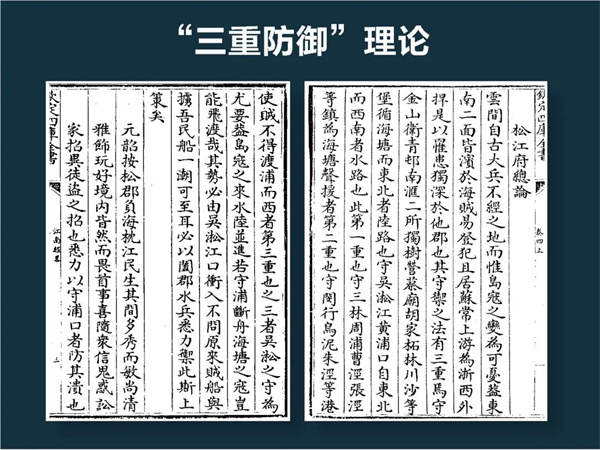 “三重防御”理论
欽定四庫全書
卷四上
松江府總論
雲間自古大兵不經之地而惟島寇之變為可憂蓋東
南二面皆濱於海賊易登犯且居蘇常上游為浙西外
捍是以罹患獨深於他郡也其守禦之法有三重焉守
金山衛青邨南滙二所獨樹營蔡廟胡家柘林川沙等
堡循海塘而東北者陸路也守吳淞江黃浦口自東北
而西南者水路也此第一重也守三林周浦曹涇張涇
等鎮為海塘聲援者第二重也守閔行烏泥朱涇等港
使賊不得渡浦而西者第三重也之三者吳淞之守為
尤要蓋島寇之來水陸並進若守浦斷舟海塘之寇豈
能飛渡哉其勢必由吳淞江口衝入不問原來賊船與
擄吾民船一潮可至耳必以闔郡水兵悉力禦此斯上
策矣
元韶按松郡負海枕江民生其間多秀而敏尚清
雅飾玩好境內皆然而畏首事喜隨衆信鬼惑訟
家招異徒盜之招也悉力以守浦口者防其潰也
欽定四庫全書
江南經畧